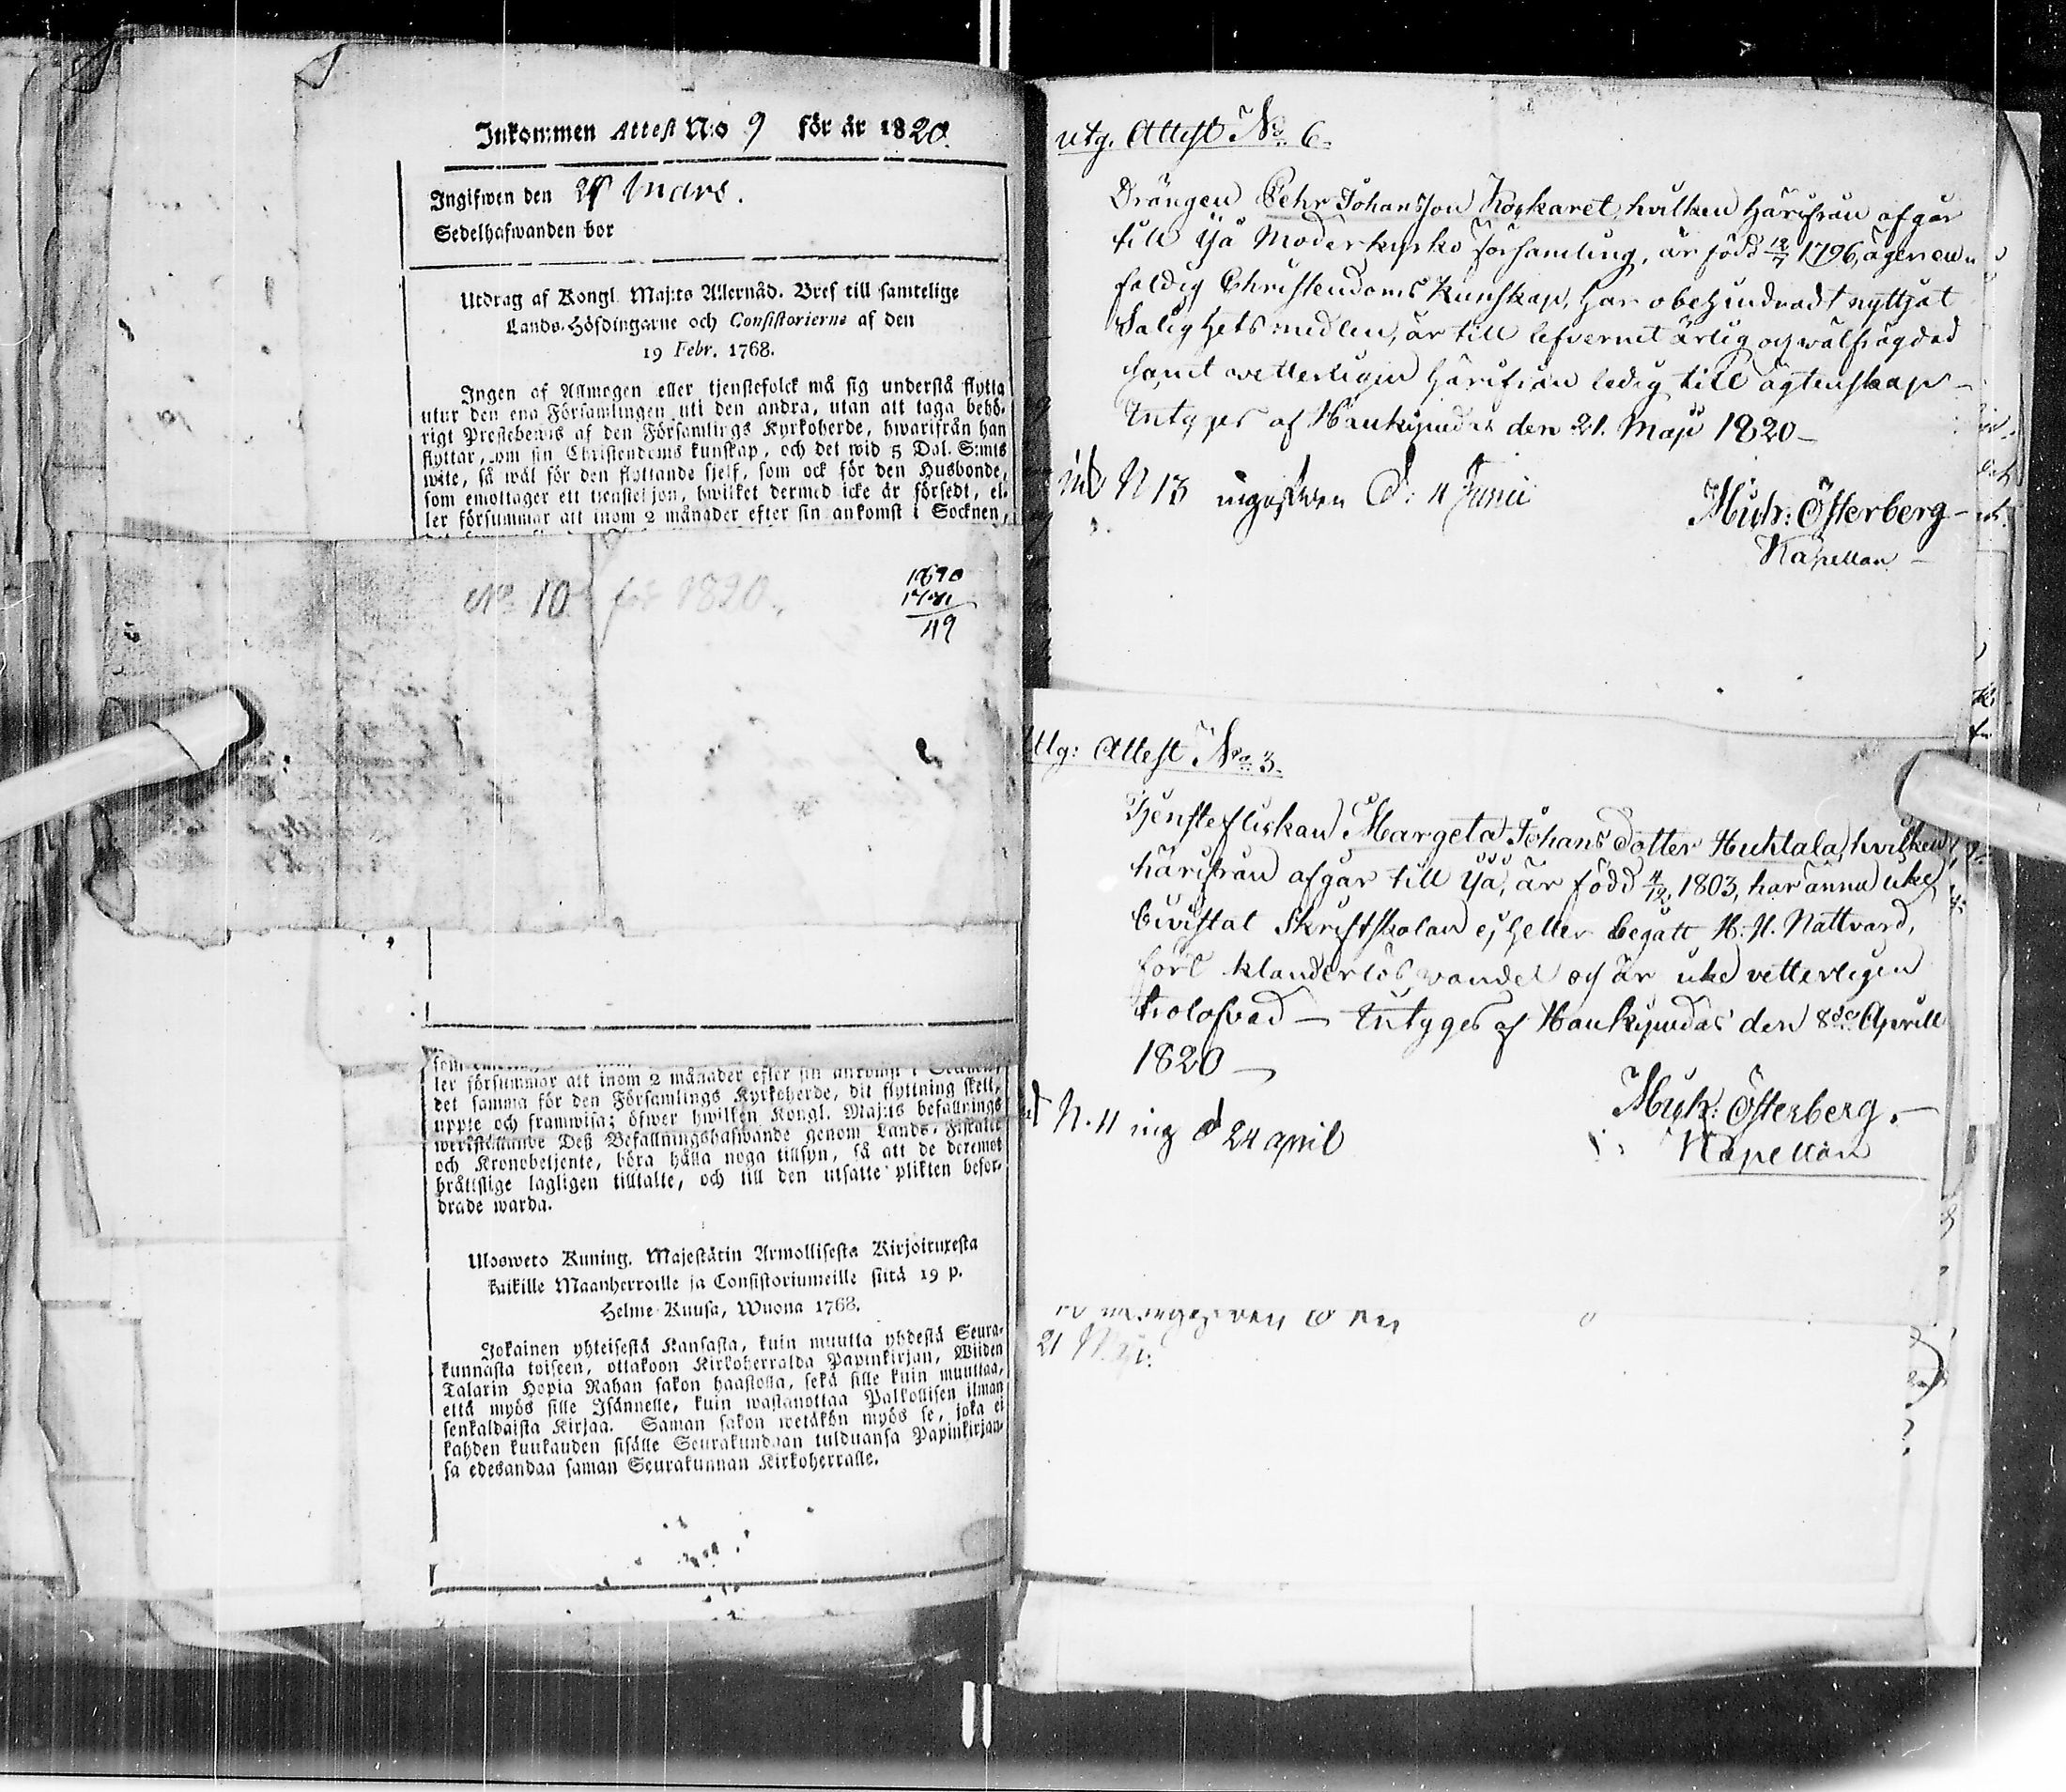 Inkommen Attest N:o 9 för år 1820.
Ingifwen den 28 Mars.
Sedelhafwanden bor
Utdrag af Kongl. Maj:ts Allernåd. Bref till samtelige
Lands-Höfdingarne och Consistorierne af den
19 Febr. 1768.
Ingen af Allmogen eller tjenstefolck må sig understå flytta
utur den ena Församlingen uti den andra, utan att taga behö-
rigt Prestebewis af den Församlings Kyrkoherde, hwarifrån han
flyttar, om sin Christendoms kunskap, och det wid 5 Dal. S:mts
wite, så wäl för den flyttande sjelf, som ock för den Husbonde,
som emottager ett tienstehjon, hwilket dermed icke är försedt, el-
ler försummar att inom 2 månader efter sin ankomst i Socknen,
No 10 för 1820.
1820
1701
119
ler försummar att inom 2 månader efter sin ankomst i Socknen,
det samma för den Församlings Kyrkoherde, dit flyttning skett,
uppte och framwisa; öfwer hwilken Kongl. Maj:ts befallnings
werkställande Deß Befallningshafwande genom Lands-Fiskaler
och Kronobetjente, böra hålla noga tillsyn, så att de deremot
bråttslige lagligen tilltalte, och till den utsatte plikten befor-
drade warda.
Ulosweto Kuning. Majestätin Armollisesta Kirjoituxesta
kaikille Maanherroille ja Consistoriumeille siitä 19 p.
Helme-Kuusa, Wuona 1768.
Jokainen yhteisestä Kansasta, kuin muutta yhdestä Seura-
kunnasta toiseen, ottakoon Kirkoherralda Papinkirjan, Wiiden
Talarin Hopia Rahan sakon haastolla, sekä sille kuin muuttaa,
että myös sille Isännelle, kuin wastanottaa Palkollisen ilman
senkaldaista Kirjaa. Saman sakon wetäkön myös se, joka ei
kahden kuukauden sisälle Seurakundaan tulduansa Papinkirjan-
sa edesandaa saman Seurakunnan Kirkoherralle.
utg. Attest No 6.
Drängen Pehr Johansson Koskaret, hvilken härifrån afgår
till Yså Moderkyrko Församling, är född 12/7 1796, äger en-
faldig Christendoms Kunskap, har obehindradt nyttjat
Salighets medlen, är till lefvernet ärlig och wälfrägdad
samt vetterligen härifrån ledig till ägtenskap -
Intyges af Haukipudas den 21. Maji 1820 -
ink N 13 ingifwen d: 11 Junii
Mich: Österberg -
Kapellan -
Utg: Attest No 3.
Tjensteflickan Margeta Johans dotter Huhtala, hvilken
härifrån afgår till Yå, är född 4/12 1803, har ännu icke
bivistat Skriftskolan ej heller begått H. H. Nattvard,
fört klanderlös vandel och är icke vetterligen
trolofvad - Intyges af Haukipudas den 8de Aprill
1820 -
N. 11 ing d 24 april
Mich: Österberg. -
Kapellan
21 Maji: